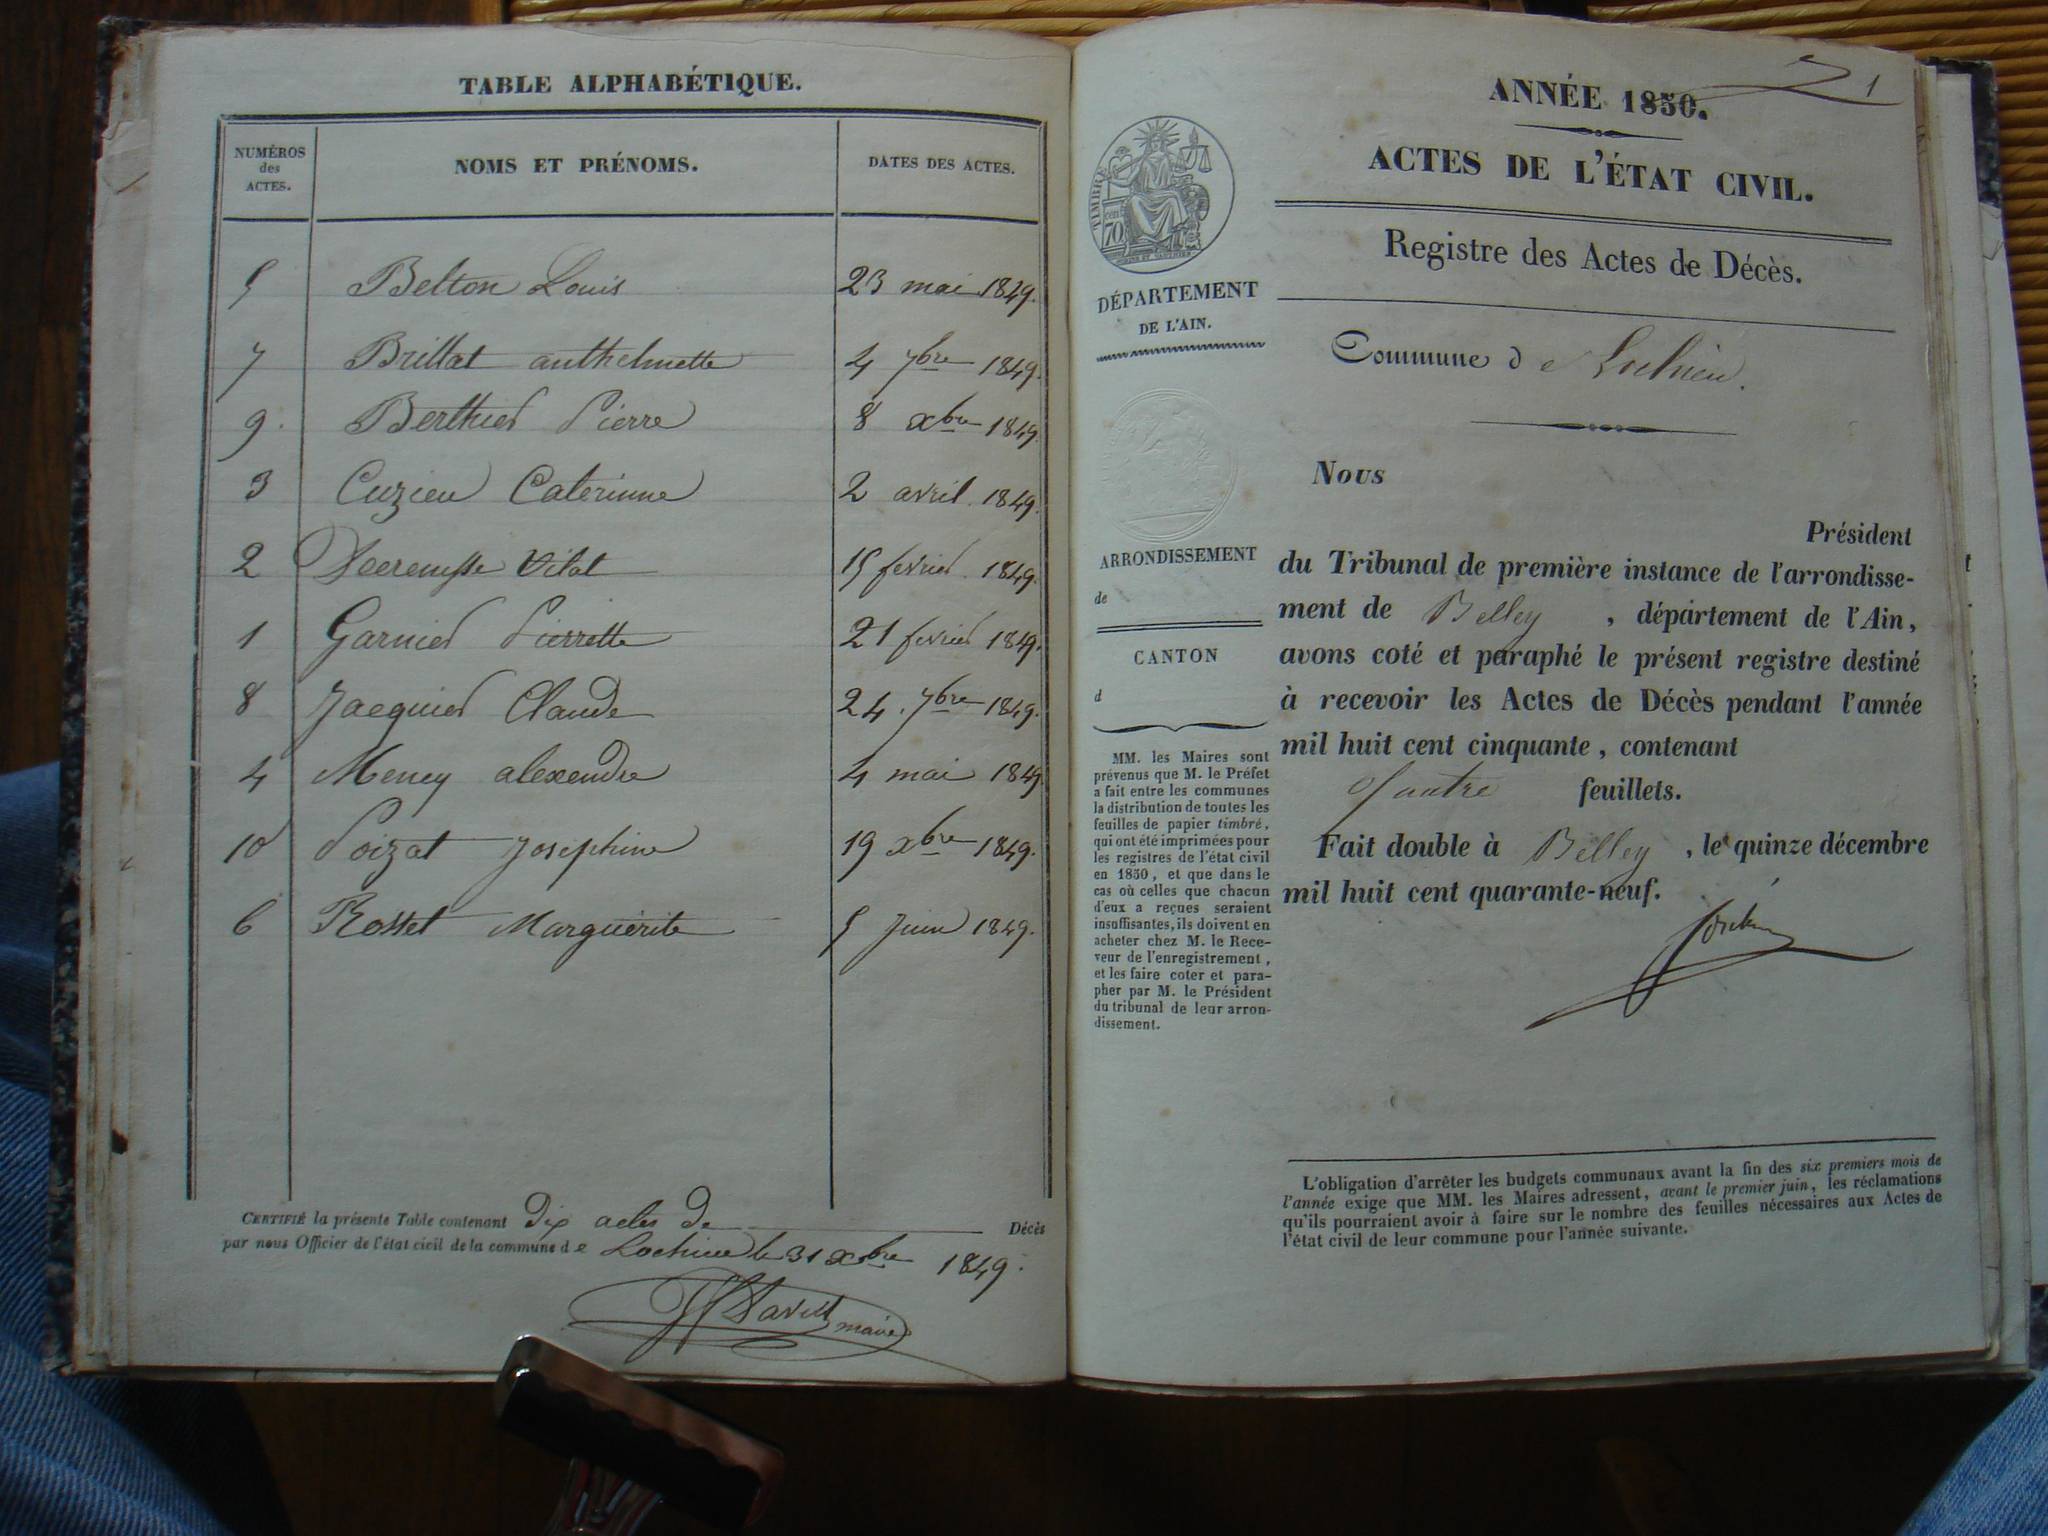 TABLE ALPHABÉTIQUE.
NUMÉROS des ACTES. NOMS ET PRÉNOMS. DATES DES ACTES.
5 Belton Louis 23 mai 1849.
7 Brillat anthelmette 4 7bre 1849.
9. Berthier Pierre 8 xbre 1849.
3 Cuzieu Caterinne 2 avril. 1849.
2 Vital 15 fevrier. 1849.
1 Garnier Pierrette 21 fevrier 1849.
8 Jacquier Claude 24. 7bre 1849.
4 Mency alexendre 4 mai 1849
10 Poizat Josephine 19 xbre 1849.
6 Rosset Marguérite 5 Juin 1849.
CERTIFIÉ la présente Table contenant dix actes de Décès
par nous Officier de l'état civil de la commune de Lochieu le 31 xbre 1849.
maire
1
ANNÉE 1850.
ACTES DE L'ÉTAT CIVIL.
Registre des Actes de Décès.
TIMBRE
cent.
70
DÉPARTEMENT
DE L'AIN.
ARRONDISSEMENT
de
CANTON
d
MM. les Maires sont
prévenus que M. le Préfet
a fait entre les communes
la distribution de toutes les
feuilles de papier timbré,
qui ont été imprimées pour
les registres de l'état civil
en 1850, et que dans le
cas où celles que chacun
d'eux a reçues seraient
insuffisantes, ils doivent en
acheter chez M. le Rece-
veur de l'enregistrement,
et les faire coter et para-
pher par M. le Président
du tribunal de leur arron-
dissement.
Commune de Lochieu.
Nous
Président
du Tribunal de première instance de l'arrondisse-
ment de Belley , département de l'Ain,
avons coté et paraphé le présent registre destiné
à recevoir les Actes de Décès pendant l'année
mil huit cent cinquante, contenant
Quatre feuillets.
Fait double à Belley , le quinze décembre
mil huit cent quarante-neuf.
L'obligation d'arrêter les budgets communaux avant la fin des six premiers mois de
l'année exige que MM. les Maires adressent, avant le premier juin, les réclamations
qu'ils pourraient avoir à faire sur le nombre des feuilles nécessaires aux Actes de
l'état civil de leur commune pour l'année suivante.